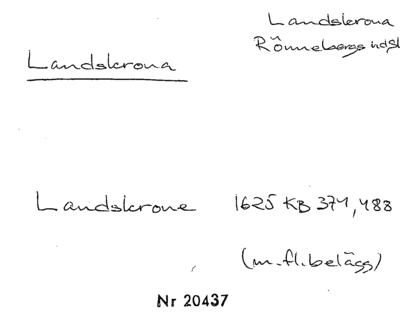 Landskrona
Rönnebergs hdsl
Landskrona
Landskrone 1625 KB 371, 488
(m.fl.belägg)
Nr 20437